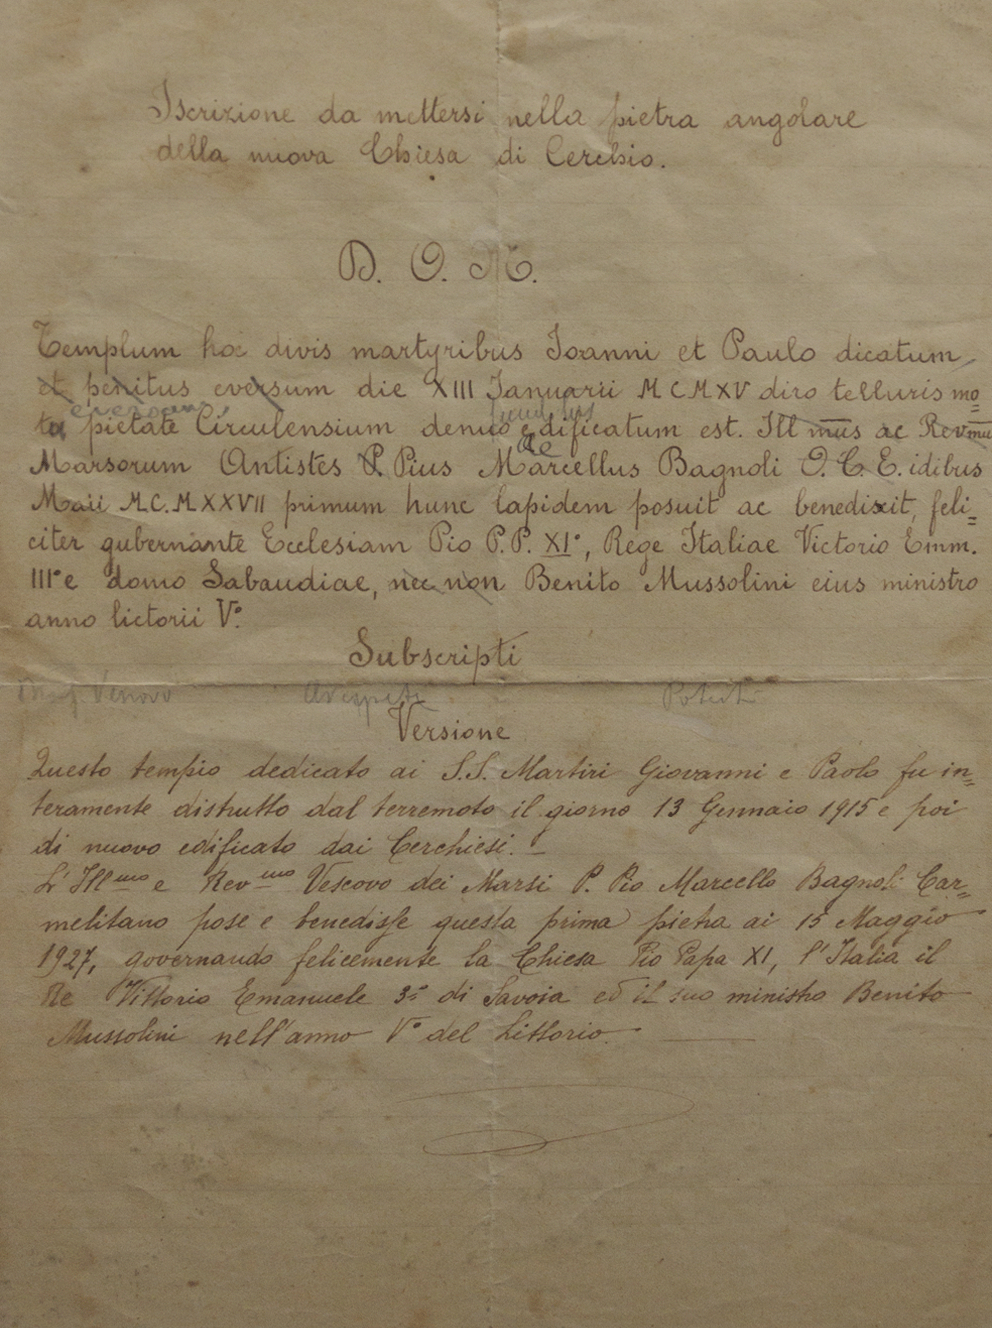 Iscrizione da mettersi nella pietra angolare
della nuova Chiesa di Cerchio.
D. O. M.
Templum hoc divis martyribus Ioanni et Paulo dicatum,
et penitus eversum die XIII Ianuarii MCMXV diro telluris mo=
tu pietate Circulensium denuo edificatum est. Ill mus ac Rev mus
Marsorum Antistes P. Pius Marcellus Bagnoli O. C. E. idibus
Maii MC.MXXVII primum hunc lapidem posuit ac benedixit, feli=
citer gubernante Ecclesiam Pio P.P. XI°, Rege Italiae Victorio Emm.
III° e domo Sabaudiae, nec non Benito Mussolini eius ministro
anno lictorii V°.
Subscripti
Versione
Questo tempio dedicato ai S.S. Martiri Giovanni e Paolo fu in=
teramente distrutto dal terremoto il giorno 13 Gennaio 1915 e poi
di nuovo edificato dai Cerchiesi. _
L' Ill mo e Rev mo Vescovo dei Marsi P. Pio Marcello Bagnoli Car=
melitano pose e benedisse questa prima pietra ai 15 Maggio
1927, governando felicemente la Chiesa Pio Papa XI, l'Italia il
Re Vittorio Emanuele 3° di Savoia ed il suo ministro Benito
Mussolini nell'anno V° del Littorio.